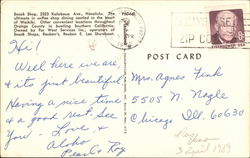 Snack Shop, 2323 Kalakaua Ave., Honolulu. The
ultimate in coffee shop dining located in the heart of
Waikiki. Other convenient locations throughout
Orange County in bustling Southern California.
Owned by Far West Services Inc., operators of
Snack Shops, Reuben's, Reuben E. Lee Showboat.
ZIP CO
8c
EISENHOWER USA
POST CARD
Hi!
Well here we are,
& its just beautiful.
Having a nice time!
& a good rest. See
you - Love, &
Aloha
Pearl & Roy
Mrs. Agnes Fish
5505 N. Nagle
Chicago Ill. 60630
3 April 1989